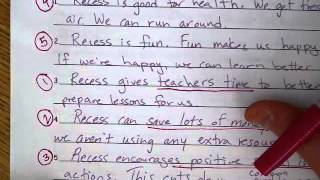 ④ 1. Recess is good for health. We get fresh
air. We can run around.
⑤ 2. Recess is fun. Fun makes us happy
If we're happy, we can learn better
① 3. Recess gives teachers time to
prepare lessons for us.
② 4. Recess can save lots of money
we aren't using any extra
③ 5. Recess encourages positive
actions. This cuts